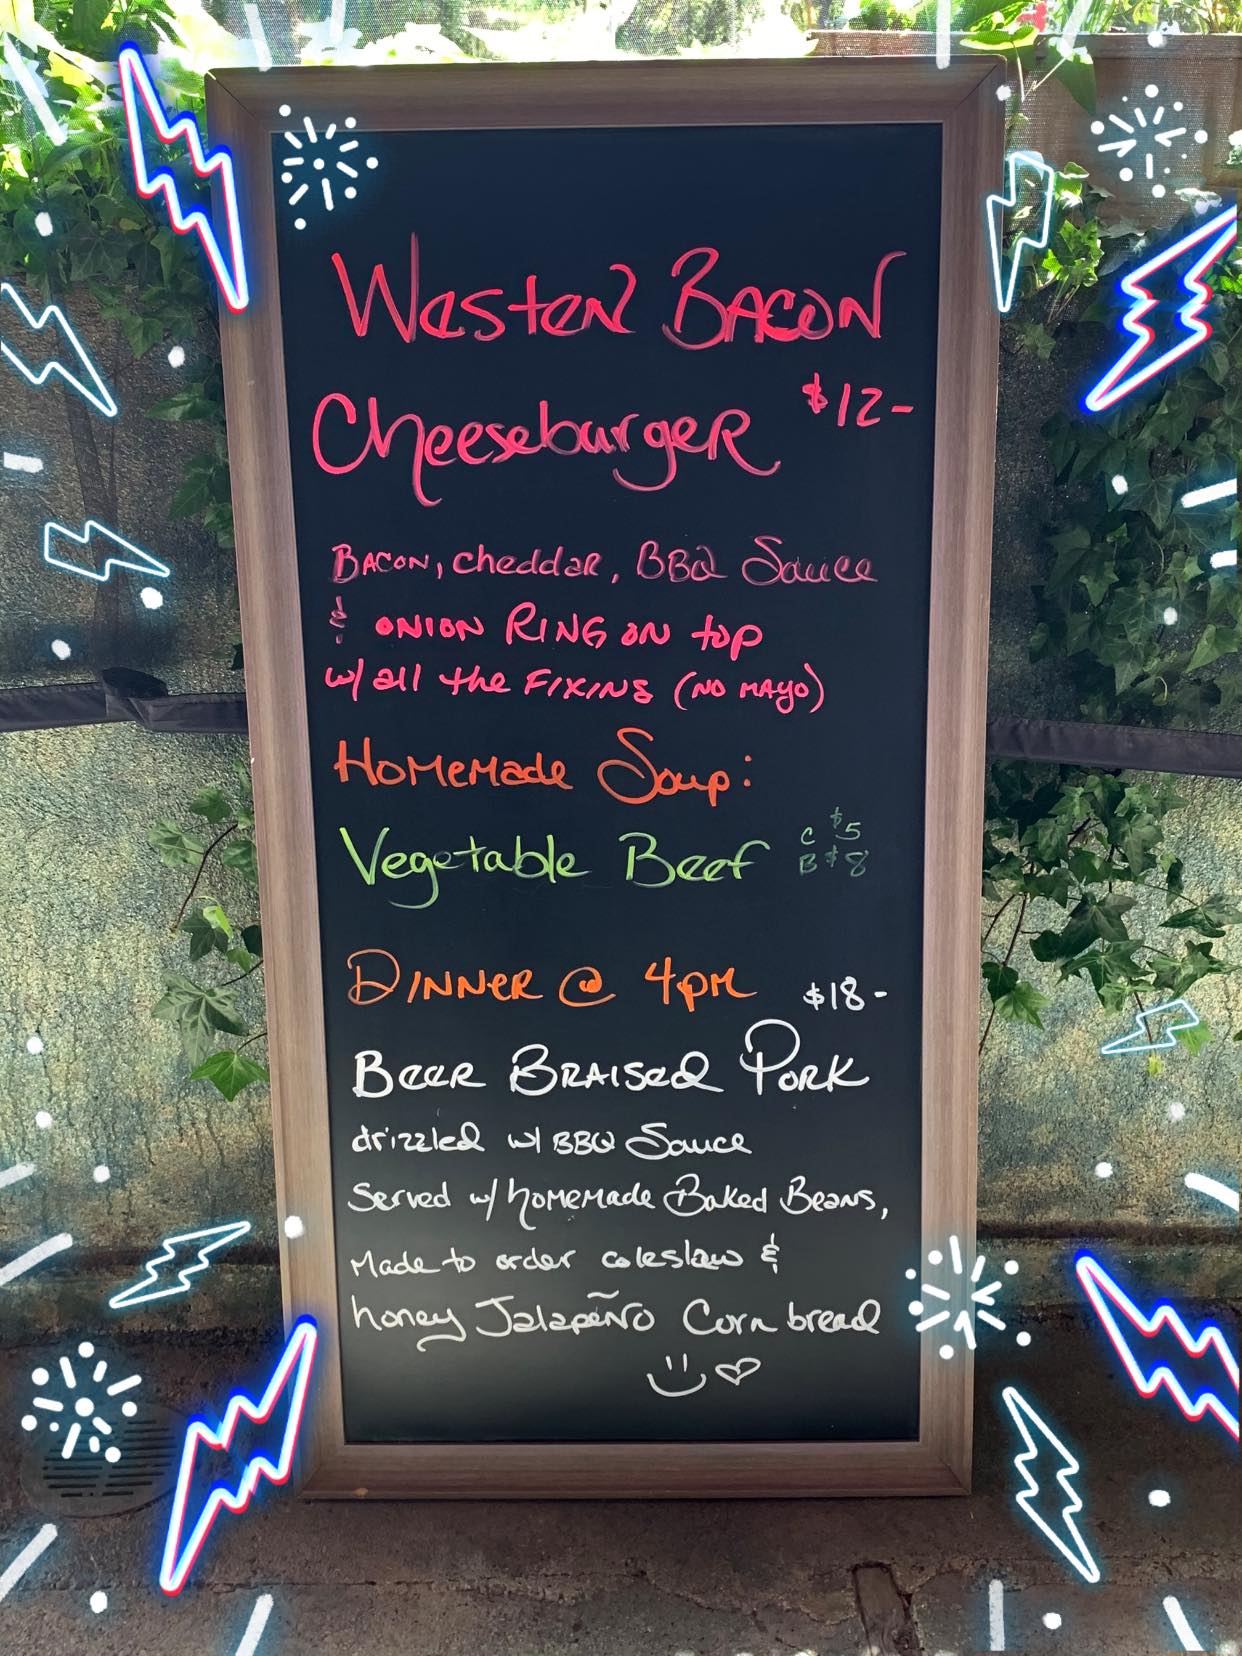 Westen BACON
Cheeseburger $12-
BACON, cheddar, BBQ Sauce
& ONION RING ON top
w/ all the FIXINS (NO MAYO)
Homemade Soup:
Vegetable Beef C $5
B $8
DINNER @ 4pm $18-
BEER BRAISED PORK
drizzled w/ BBQ Sauce
Served w/ homemade Baked Beans,
Made to order coleslaw &
honey Jalapeño Corn bread